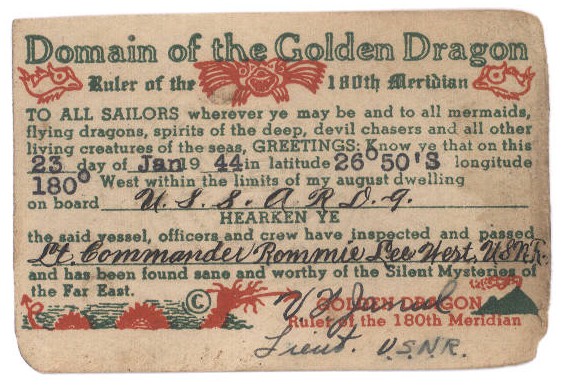 Domain of the Golden Dragon
Ruler of the 180th Meridian
TO ALL SAILORS wherever ye may be and to all mermaids,
flying dragons, spirits of the deep, devil chasers and all other
living creatures of the seas, GREETINGS: Know ye that on this
23 day of Jan 19 44 in latitude 26° 50'S longitude
180° West within the limits of my august dwelling
on board U.S.S. A R D. 9.
HEARKEN YE
the said vessel, officers and crew have inspected and passed
Lt. Commander Rommie Lee West, USNR.
and has been found sane and worthy of the Silent Mysteries of
the Far East.
©
GOLDEN DRAGON
Ruler of the 180th Meridian
Lieut. U.S.N.R.